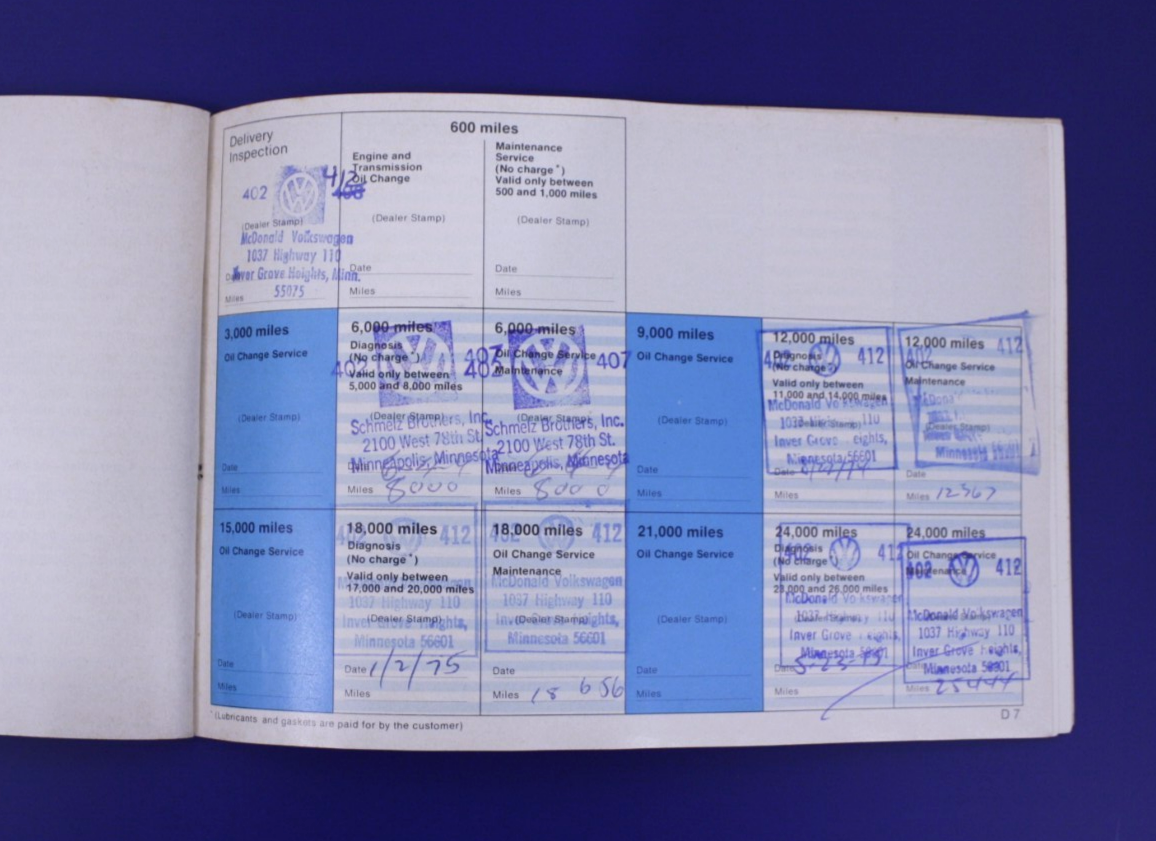 Delivery
Inspection
402
412
(Dealer Stamp)
McDonald Volkswagen
1037 Highway 110
Inver Grove Heights, Minn.
Miles 55075
600 miles
Engine and
Transmission
Oil Change
(Dealer Stamp)
Date
Miles
Maintenance
Service
(No charge*)
Valid only between
500 and 1,000 miles
(Dealer Stamp)
Date
Miles
3,000 miles
Oil Change Service
(Dealer Stamp)
Date
Miles
6,000 miles
Diagnosis
(No charge*)
Valid only between
5,000 and 8,000 miles
402
(Dealer Stamp)
Schmelz Brothers, Inc.
2100 West 78th St.
Minneapolis, Minnesota
Miles 8000
6,000 miles
Oil Change Service
Maintenance
402 407
(Dealer Stamp)
Schmelz Brothers, Inc.
2100 West 78th St.
Minneapolis, Minnesota
Miles 8000
9,000 miles
Oil Change Service
(Dealer Stamp)
Date
Miles
12,000 miles
Diagnosis
(No charge*)
402 412
Valid only between
11,000 and 14,000 miles
McDonald Volkswagen
1037 Highway 110
(Dealer Stamp)
Inver Grove Heights,
Minnesota 56601
Date
Miles
12,000 miles
402 412
Oil Change Service
Maintenance
(Dealer Stamp)
Minnesota 56601
Date
Miles 12367
15,000 miles
Oil Change Service
(Dealer Stamp)
Date
Miles
18,000 miles
412
Diagnosis
(No charge*)
Valid only between
17,000 and 20,000 miles
McDonald Volkswagen
1037 Highway 110
(Dealer Stamp)
Inver Grove Heights,
Minnesota 56601
Date 1/2/75
Miles
18,000 miles
402 412
Oil Change Service
Maintenance
McDonald Volkswagen
1037 Highway 110
(Dealer Stamp)
Inver Grove Heights,
Minnesota 56601
Date
Miles 18 656
21,000 miles
Oil Change Service
(Dealer Stamp)
Date
Miles
24,000 miles
Diagnosis
402 412
(No charge*)
Valid only between
23,000 and 26,000 miles
McDonald Volkswagen
1037 Highway 110
(Dealer Stamp)
Inver Grove Heights,
Minnesota 56601
Date 5-23-75
Miles
24,000 miles
Oil Change Service
402 412
Maintenance
McDonald Volkswagen
1037 Highway 110
Inver Grove Heights,
Minnesota 56601
Date
Miles
*(Lubricants and gaskets are paid for by the customer)
D 7